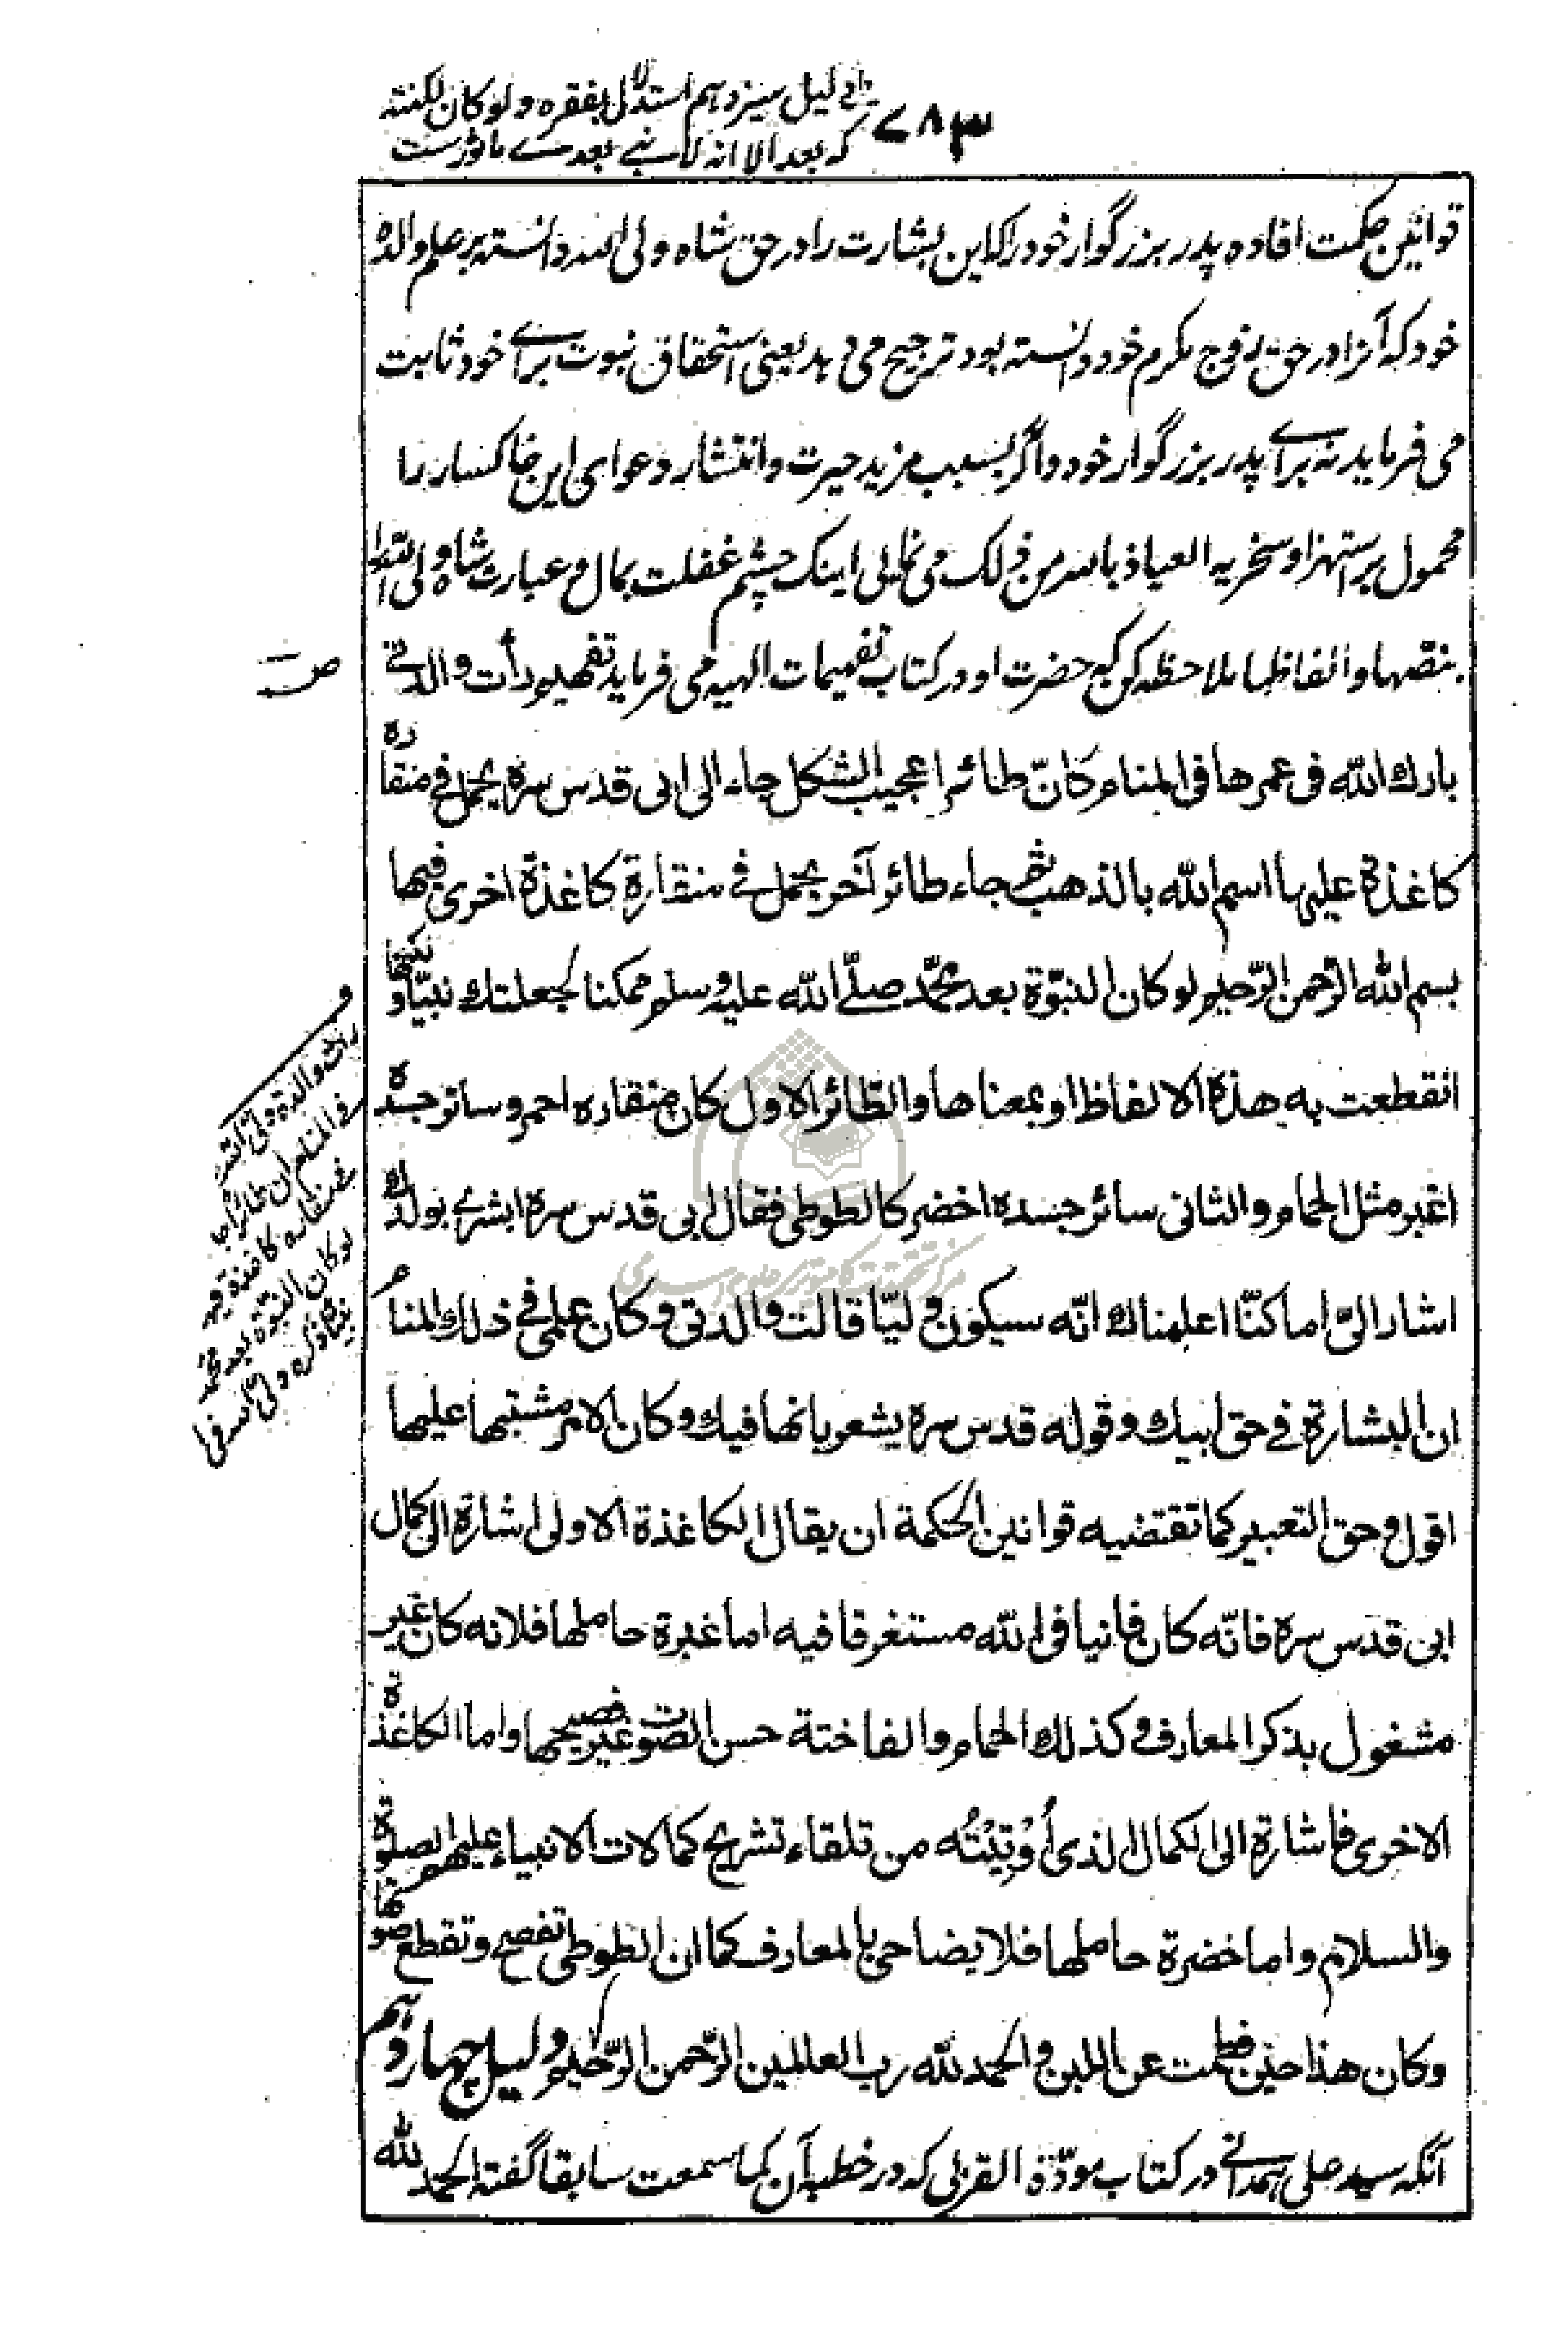 دلیل سیزدهم استدلال بفقره ولو کان لکنته
۷۸۳
که بعد الا انه لا نبی بعدی ماثورست
قوانین حکمت افاده پدر بزرگوار خود را که این بشارت را در حق شاه ولی الله دانسته بر علم والده
خود که آنرا در حق زوج مکرم خود دانسته بود ترجیح می دهد یعنی استحقاق نبوت برای خود ثابت
می فرماید نه برای پدر بزرگوار خود و اگر بسبب مزید حیرت و انتشار دعوای این خاکسار را
محمول بر استهزا و سخریه العیاذ بالله من ذلک می نمائی اینک چشم غفلت بمال و عبارت شاه ولی الله را
بنقصها و الفاظها ملاحظه کن که حضرت او در کتاب تفهیمات الهیه می فرماید تفهیم رأت والدتی
ص
بارك الله فی عمرها فی المنام کانّ طائرا عجیب الشکل جاء الی ابی قدس سره یحمل فی منقاره
کاغذة علیها اسم الله بالذهب ثم جاء طائر آخر یحمل فی منقارة کاغذة اخری فیها
بسم الله الرّحمن الرّحیم لو کان النبوّة بعد محمّد صلّی الله علیه وسلم ممکنا لجعلتك نبیّا و لکنها
انقطعت به هذه الالفاظ او بمعناها والطّائر الاول کان منقاره احمر وسائر جسده
اغبر مثل الحمام والثانی سائر جسده اخضر کالطوطی فقال ابی قدس سره ابشری بولدك
اشار الیّ اما کنّا اعلمناك انّه سیکون ولیّا قالت والدتی وکان علمی فی ذلك المنام
ان البشارة فی حق ابیك وقوله قدس سره یشعر بانها فیك وکان الامر مشتبها علیها
اقول وحق التعبیر کما تقتضیه قوانین الحکمة ان یقال الکاغذة الاولی اشارة الی کمال
ابی قدس سره فانّه کان فانیا فی الله مستغرقا فیه اما غبرة حاملها فلانه کان غیر
مشغول بذکر المعارف وکذلك الحمام والفاختة حسن الصوت غیر فصیحها واما الکاغذة
الاخری فاشارة الی الکمال الذی أُوْتِیْتُه من تلقاء تشریح کمالات الانبیاء علیهم الصلوة
والسلام واما خضرة حاملها فلایضاحی بالمعارف کما ان الطوطی تفصح وتقطع صوتها
وکان هذا حین فطمت عن اللبن والحمد لله رب العالمین الرّحمن الرّحیم دلیل چهاردهم
آنکه سید علی همدانی در کتاب مودّة القربی که در خطبه آن کما سمعت سابقا گفته الحمد لله
و
رأت والدة ولی الله
فی المنام ان طائرا جاء
فی منقاره کاغذة فیه
لو کان النبوّة بعد محمد